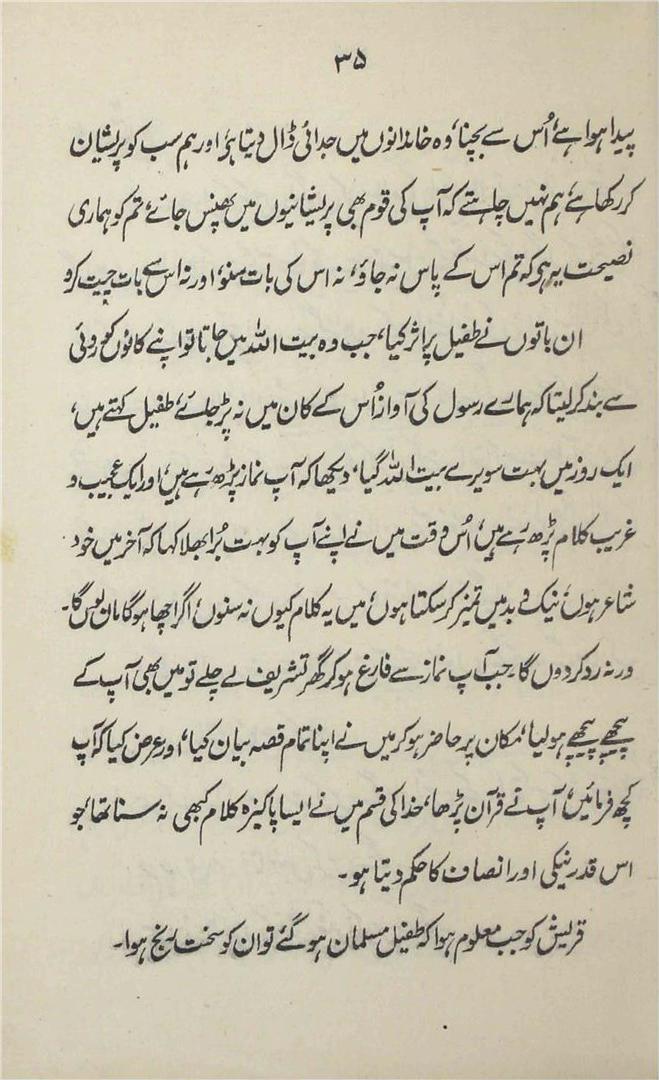 ۳۵
پیدا ہوا ہے، اُس سے بچنا، وہ خاندانوں میں جدائی ڈال دیتا ہے، اور ہم سب کو پریشان
کر رکھا ہے، ہم نہیں چاہتے کہ آپ کی قوم بھی پریشانیوں میں پھنس جائے، تم کو ہماری
نصیحت یہ ہو کہ تم اس کے پاس نہ جاؤ، نہ اس کی بات سنو، اور نہ اس سے بات چیت کرو
ان باتوں نے طفیل پر اثر کیا، جب وہ بیت اللہ میں جاتا تو اپنے کانوں کو روئی
سے بند کر لیتا کہ ہمارے رسول کی آواز اُس کے کان میں نہ پڑ جائے، طفیل کہتے ہیں،
ایک روز میں بہت سویرے بیت اللہ گیا، دیکھا کہ آپ نماز پڑھ رہے ہیں، اور ایک عجیب و
غریب کلام پڑھ رہے ہیں، اُس وقت میں نے اپنے آپ کو بہت بُرا بھلا کہا کہ آخر میں خود
شاعر ہوں، نیک و بد میں تمیز کر سکتا ہوں، میں یہ کلام کیوں نہ سنوں، اگر اچھا ہو گا مان لوں گا۔
ورنہ رد کر دوں گا۔ جب آپ نماز سے فارغ ہو کر گھر تشریف لے چلے تو میں بھی آپ کے
پیچھے پیچھے ہو لیا، مکان پر حاضر ہو کر میں نے اپنا تمام قصہ بیان کیا، اور عرض کیا کہ آپ
کچھ فرمائیں، آپ نے قرآن پڑھا، خدا کی قسم میں نے ایسا پاکیزہ کلام کبھی نہ سنا تھا، جو
اس قدر نیکی اور انصاف کا حکم دیتا ہو۔
قریش کو جب معلوم ہوا کہ طفیل مسلمان ہو گئے تو ان کو سخت رنج ہوا۔